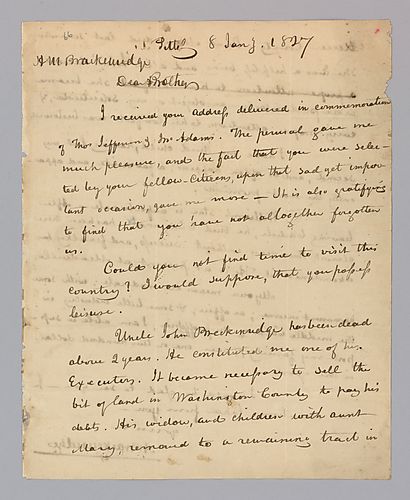 66
Pittsg 8 Jany. 1827
H M Brackenridge
Dear Brother
I received your address delivered in commemoration
of Thos Jefferson & Jno. Adams. The perusal gave me
much pleasure, and the fact that you were selec-
ted by your fellow-citizens, upon that sad yet impor-
tant occasion, gave me more — It is also gratifying
to find that you have not altogether forgotten
us.
Could you not find time to visit this
country? I would suppose, that you possess
leisure.
Uncle John Breckenridge has been dead
above 2 years. He constituted me one of his
Executors. It became necessary to sell the
bit of land in Washington County to pay his
debts. His widow, and children with aunt
Mary, removed to a remaining tract in